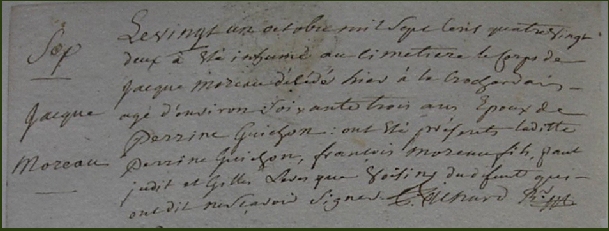 Sep
Jacque
Moreau
Le vingt un octobre mil sept cens quatre vingt
deux a eté inhumé au cimetiere le corps de
jacque moreau décédé hier à la
agé d'environ soixante trois ans Epoux de
Perrine Guichon : ont eté présents laditte
Perrine Guichon, francois moreau fils, paul
judit et Gilles voisins du défunt qui
ont dit ne scavoir signer